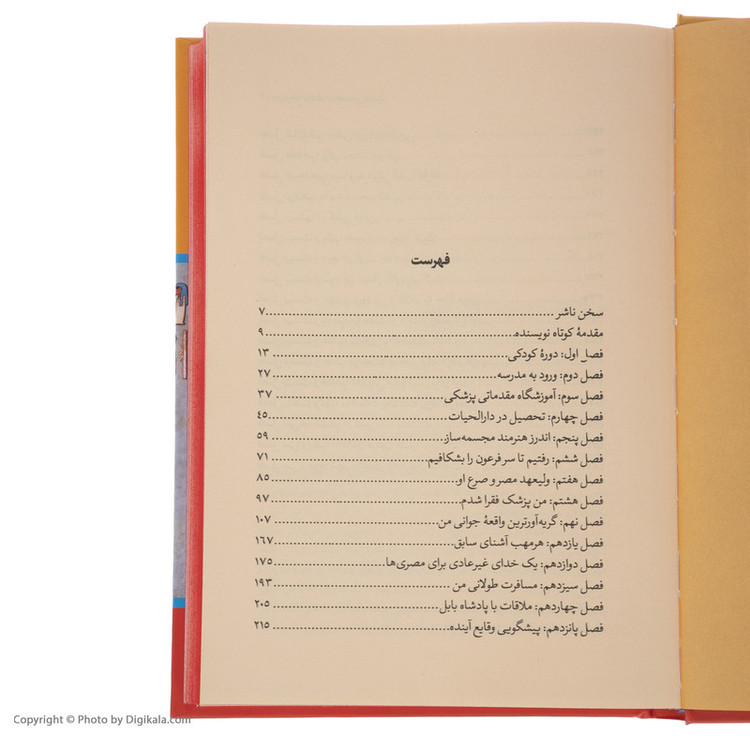 فهرست
سخن ناشر ........ ۷
مقدمهٔ کوتاه نویسنده ........ ۹
فصل اول: دورهٔ کودکی ........ ۱۳
فصل دوم: ورود به مدرسه ........ ۲۷
فصل سوم: آموزشگاه مقدماتی پزشکی ........ ۳۷
فصل چهارم: تحصیل در دارالحیات ........ ۴۵
فصل پنجم: اندرز هنرمند مجسمه‌ساز ........ ۵۹
فصل ششم: رفتیم تا سر فرعون را بشکافیم ........ ۷۱
فصل هفتم: ولیعهد مصر و صرع او ........ ۸۵
فصل هشتم: من پزشک فقرا شدم ........ ۹۷
فصل نهم: گریه‌آورترین واقعهٔ جوانی من ........ ۱۰۷
فصل یازدهم: هرمهب آشنای سابق ........ ۱۶۷
فصل دوازدهم: یک خدای غیرعادی برای مصری‌ها ........ ۱۷۵
فصل سیزدهم: مسافرت طولانی من ........ ۱۹۳
فصل چهاردهم: ملاقات با پادشاه بابل ........ ۲۰۵
فصل پانزدهم: پیشگویی وقایع آینده ........ ۲۱۵
Copyright © Photo by Digikala.com